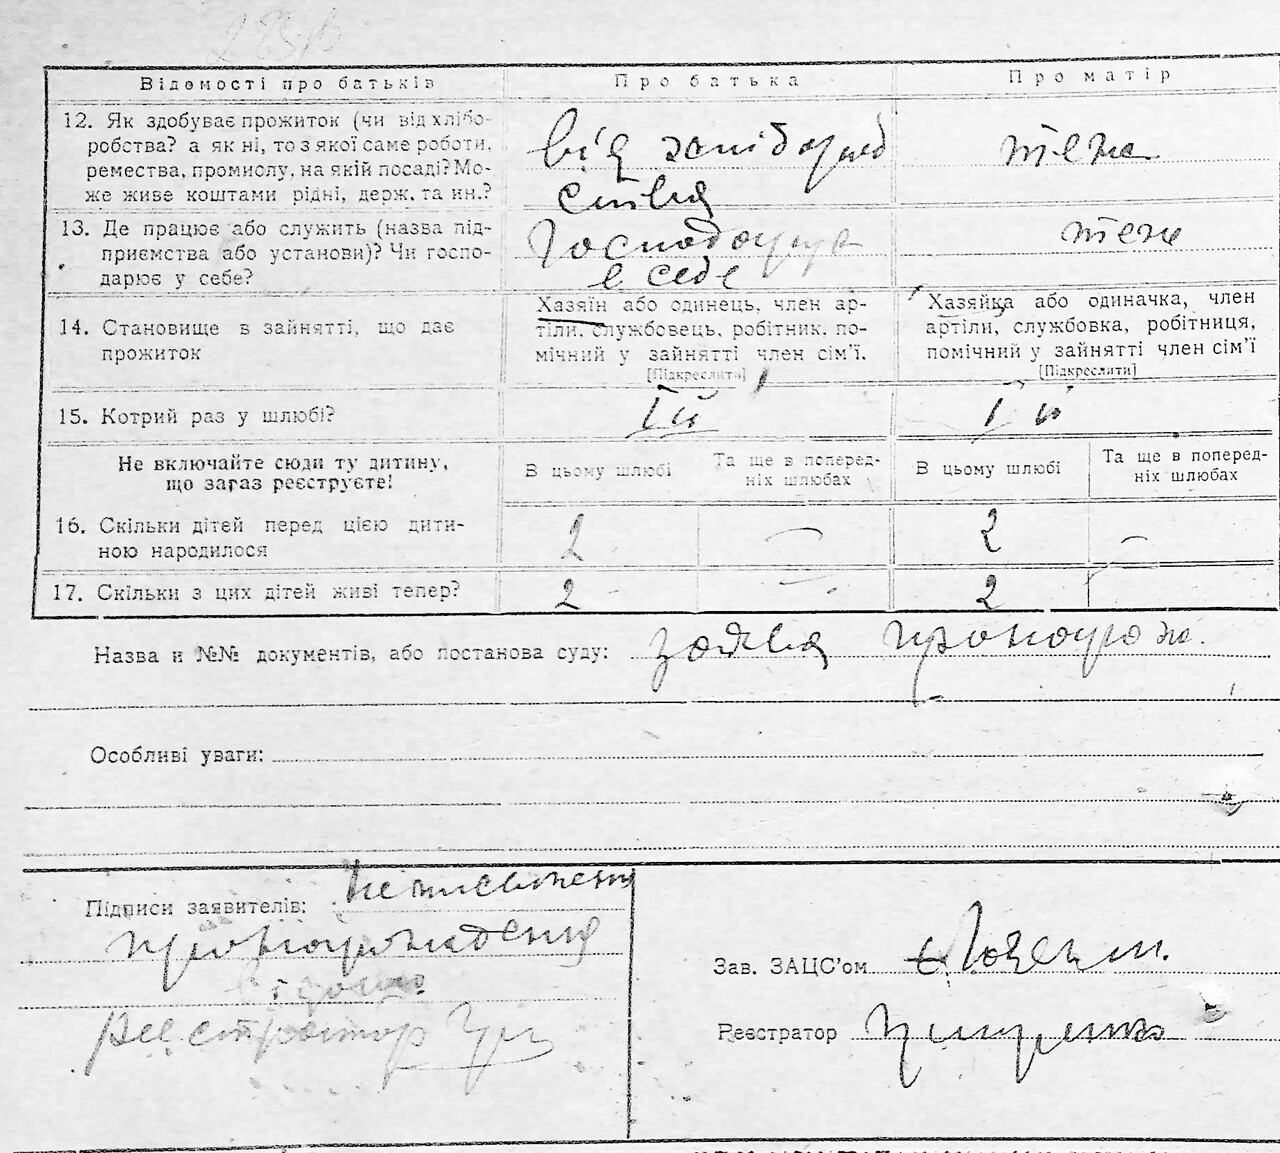 Відомості про батьків
Про батька
Про матір
12. Як здобуває прожиток (чи від хлібо-
робства? а як ні, то з якої саме роботи,
ремества, промислу, на якій посаді? Мо-
же живе коштами рідні, держ. та ин.?
від
теж
13. Де працює або служить (назва під-
приємства або установи)? Чи госпо-
дарює у себе?
Господарує
в себе
теж
14. Становище в зайнятті, що дає
прожиток
Хазяїн або одинець, член ар-
тіли, службовець, робітник, по-
мічний у зайнятті член сім’ї.
[Підкреслити]
Хазяйка або одиначка, член
артіли, службовка, робітниця,
помічний у зайнятті член сім’ї
[Підкреслити]
15. Котрий раз у шлюбі?
I й
I й
Не включайте сюди ту дитину,
що зараз реєструєте!
В цьому шлюбі
Та ще в поперед-
ніх шлюбах
В цьому шлюбі
Та ще в поперед-
ніх шлюбах
16. Скільки дітей перед цією дити-
ною народилося
2
—
2
—
17. Скільки з цих дітей живі тепер?
2
-
2
Назва и №№ документів, або постанова суду: заява
Особливі уваги:
Підписи заявителів:
Зав. ЗАЦС’ом
Реєстратор
реєстратор